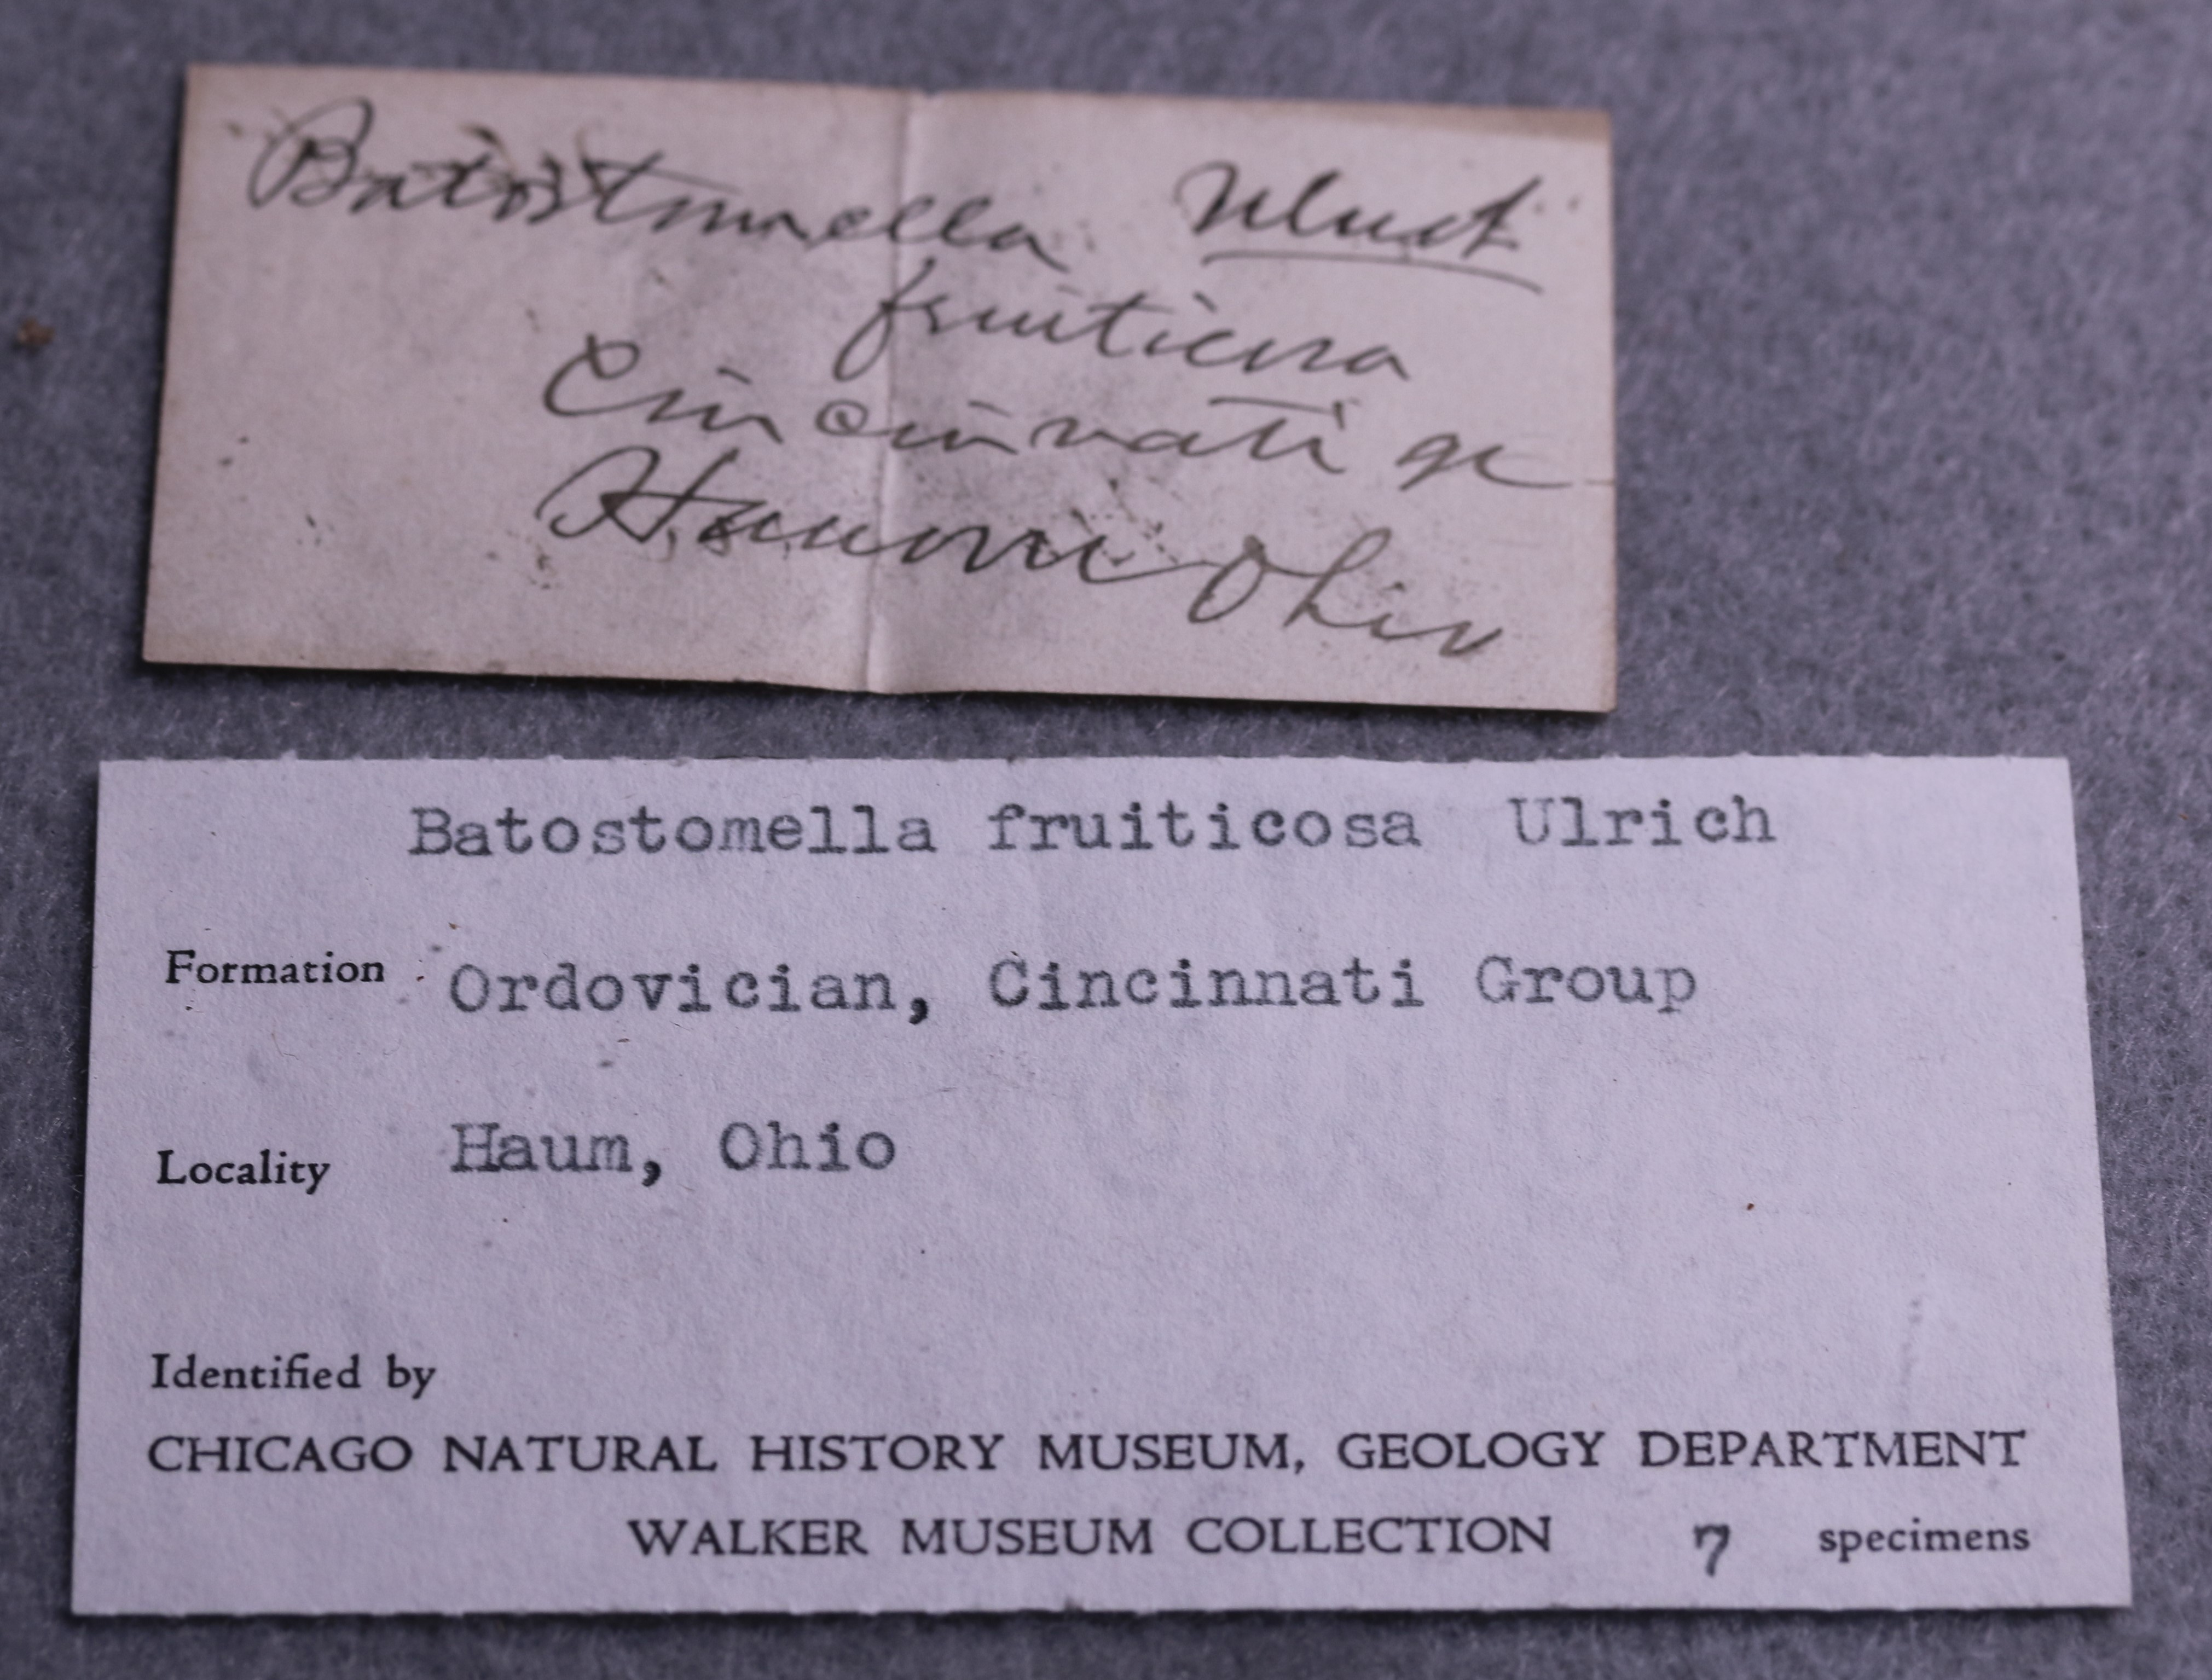 Batostomella
fruiticosa
Cincinnati gr
Ohio
Batostomella fruiticosa Ulrich
Formation Ordovician, Cincinnati Group
Locality Haum, Ohio
Identified by
CHICAGO NATURAL HISTORY MUSEUM, GEOLOGY DEPARTMENT
WALKER MUSEUM COLLECTION 7 specimens